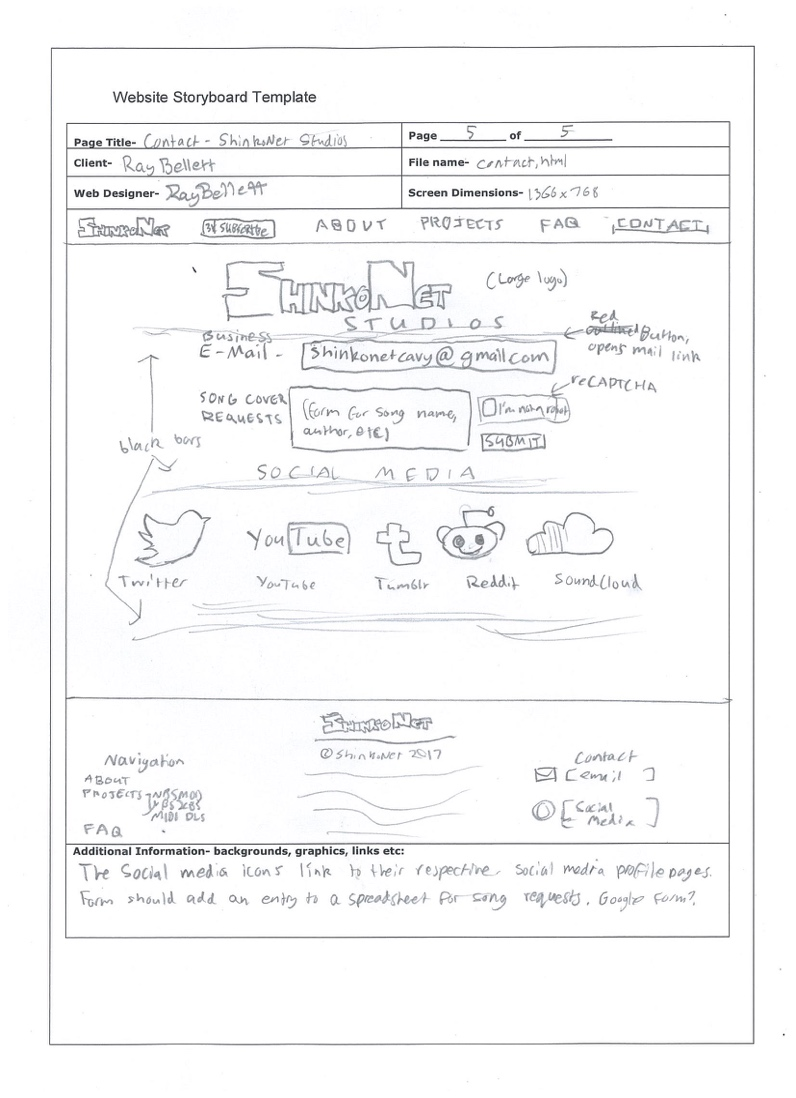 Website Storyboard Template
Page Title- Contact - ShinkoNet Studios
Page 5 of 5
Client- Ray Bellett
File name- contact.html
Web Designer- Ray Bellett
Screen Dimensions- 1366 x 768
SHINKONET SUBSCRIBE ABOUT PROJECTS FAQ CONTACT
SHINKONET (Large logo)
STUDIOS
Red
outlined Button,
opens mail link
Business
E-Mail - shinkonetcavy@gmail.com
reCAPTCHA
SONG COVER
REQUESTS
(Form for song name,
author, etc)
I'm not a robot
SUBMIT
black bars
SOCIAL MEDIA
YouTube
Twitter YouTube Tumblr Reddit SoundCloud
SHINKONET
© ShinkoNet 2017
Navigation
ABOUT
PROJECTS
MIDI DLS
FAQ
Contact
[email]
[Social
Media]
Additional Information- backgrounds, graphics, links etc:
The Social media icons link to their respective social media profile pages.
Form should add an entry to a spreadsheet for song requests. Google Form?